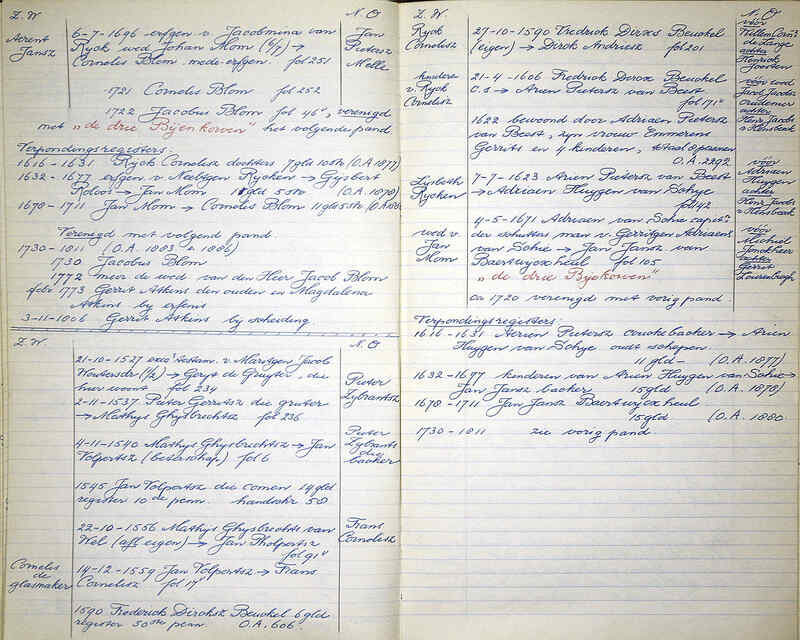 Z. W.
N. O
Aerent
Jansz
6-7-1696 erfgen v. Jacobmina van
Ryck wed Johan Mom (6/7) →
Cornelis Blom mede-erfgen. fol 251
Jan
Pietersz
Melle
1721 Cornelis Blom fol 252
1722 Jacobus Blom fol 46v, verenigd
met „de drie Bijenkorven" het volgende pand
Verpondingsregisters:
1616-1631 Ryck Cornelisz dochters 7 gld 10 str (O.A. 1877)
1632-1677 erfgen v. Neeltgen Rycken → Gysbert
Roloos → Jan Mom 11 gld 5 str (O.A. 1878)
1678-1711 Jan Mom → Cornelis Blom 11 gld 5 str (O.A. 1880
Verenigd met volgend pand.
1730-1811 (O.A. 1883 → 1886)
1730 Jacobus Blom
1772 mevr de wed van den Heer Jacob Blom
febr 1773 Gerrit Atkins den ouden en Magdalena
Atkins by erfenis
3-11-1806 Gerrit Atkins by scheiding.
Z. W.
N. O
21-10-1527 exec testam. v. Marytgen Jacob
Woutersdr (1/2) → Geryt de Gruyter, die
hier woont fol 234
2-11-1537 Pieter Gerritsz die gruter
→ Mathys Ghysbrechtsz fol 236
Pieter
Zybrantsz
4-11-1540 Mathys Ghysbrechtsz → Jan
Volpertsz (beterschap) fol 6
Pieter
Zybrants
die
backer
1545 Jan Volpertsz die comen 19 gld
register 10de penn. handschr 58
22-10-1556 Mathys Ghysbrechts van
Wel (afl eigen) → Jan Pholpertsz
fol 91v
Frans
Cornelisz
Cornelis
de
glasmaker
14-12-1559 Jan Volpertsz → Frans
Cornelisz fol 17v
1590 Frederick Dircksz Beuckel 6 gld
register 50ste penn. O.A. 606.
Z. W.
N. O
Ryck
Cornelisz
27-10-1590 Fredrick Dircxs Beuckel
(eigen) → Dirck Andriesz fol 201
vóór
Willem Corn's
de Lange
achter
Henrick
Joosten
kinderen
v. Ryck
Cornelisz
21-4-1606 Fredrick Dircx Beuckel
c.s → Arien Pietersz van Beest
fol 171v
vóór wed
Jacob Jacobs
Oudemer
achter
Henr. Jacobs
v Hensbeek
1622 bewoond door Adriaen Pietersz
van Beest, zyn vrouw Emmerens
Gerrits en 4 kinderen, totaal 6 personen
O.A. 2292
Lysbeth
Rycken
7-7-1623 Arien Pietersz van Beest
→ Adriaen Huygen van Schye
fol 42
vóór
Adriaen
Huygen
achter
Henr Jacobs
v Hensbeek
wed v.
Jan
Mom
4-5-1671 Adriaen van Schie capitn
der schutters man v. Gerritgen Adriaens
van Schie → Jan Jansz van
Baertwyckheul fol 105
„de drie Byekorven"
vóór
Michiel
Jonckheer
achter
Gerrit
ca 1720 verenigd met vorig pand.
Verpondingsregisters:
1616-1631 Aerien Pietersz couckebacker → Arien
Huygen van Schye oudt schepen.
11 gld - (O.A. 1877)
1632-1677 kinderen van Arien Huygen van Schie →
Jan Jansz backer 15 gld (O.A. 1878)
1678-1711 Jan Jansz Baertwyckheul
15 gld (O.A. 1880.
1730-1811 zie vorig pand